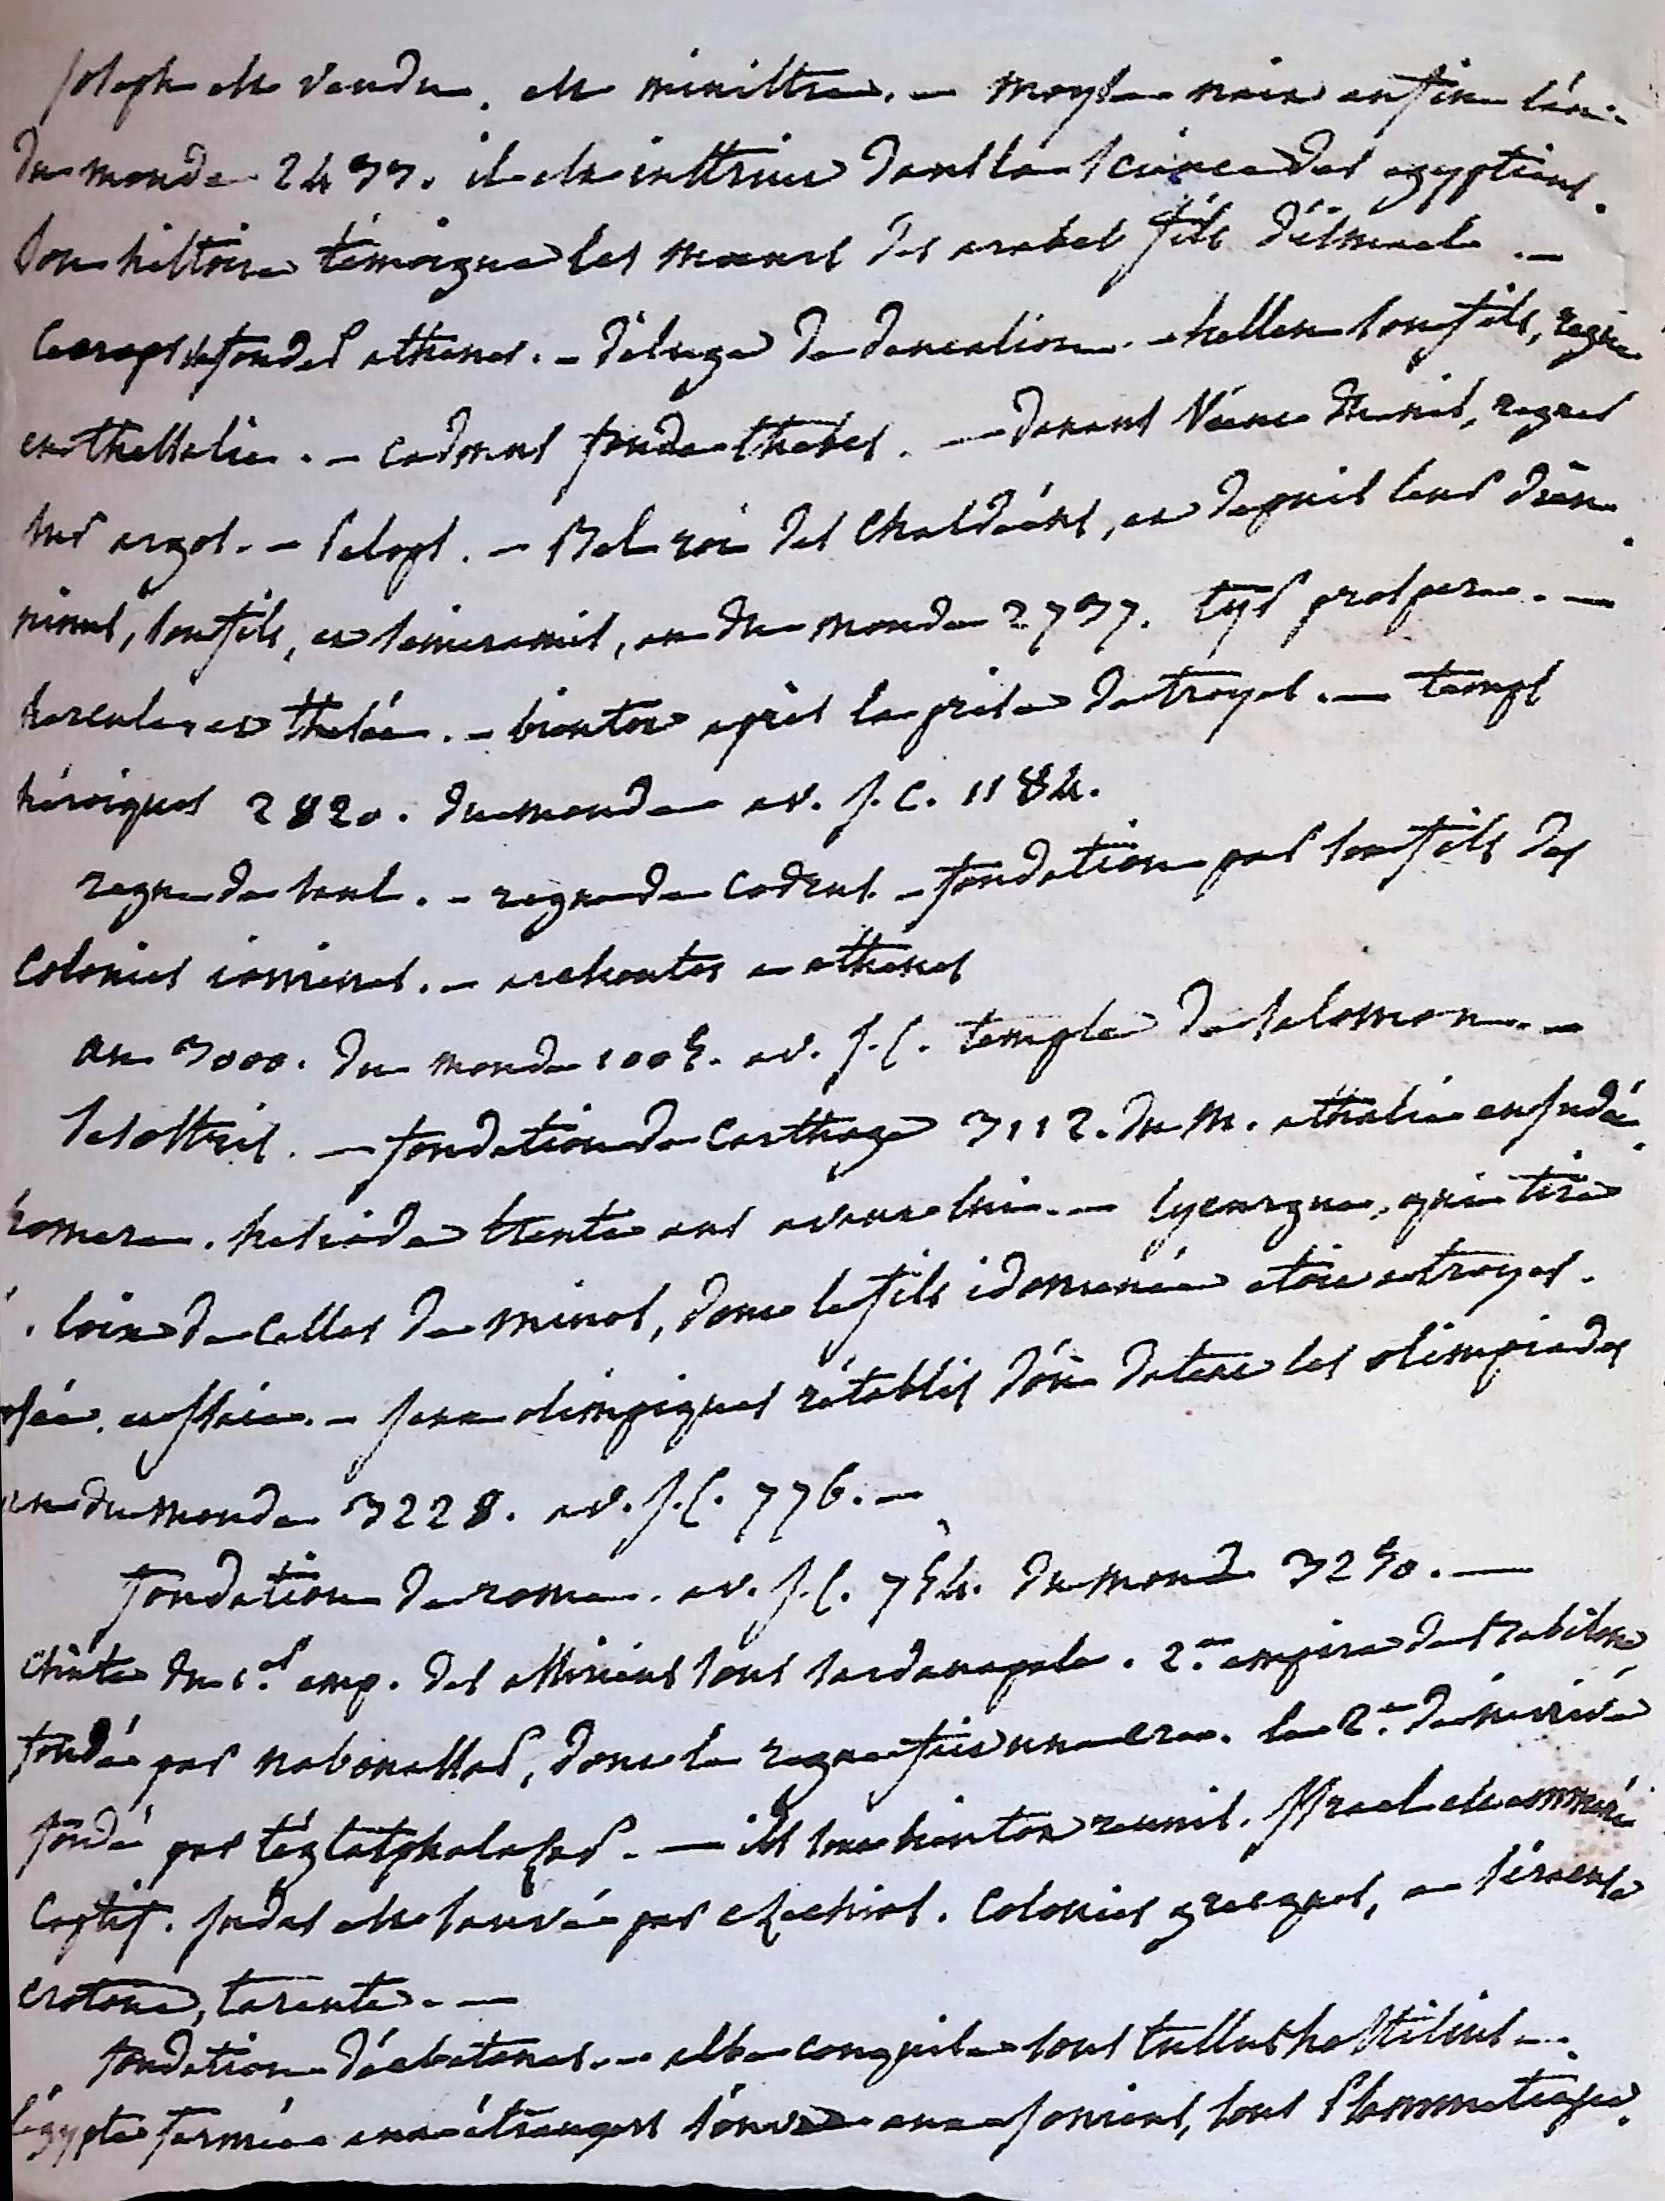 joseph est vendu, est ministre. — moyse naix enfin l'an.
du monde 2433. il est instruit dans la science des egyptiens.
son histoire témoigne les moeurs des arabes fils d'ismael. —
Cecrops fonde athenes. — déluge de deucalion. — hellen son fils, regne
en thessalie. — cadmus fonde thebes. — danaus venu regner
sur argos. — Pelops. — Bel roi des Chaldéens, et depuis leur dieu.
ninus, son fils, et semiramis, an du monde 2737. tyr prospere. —
hercule, et thesée. — bientot après la prise de troyes. — temps
héroiques 2820. du monde av. J. C. 1184.
regne de saul. — regne de Codrus. — fondation par son fils des
Colonies ioniennes. — archontes a athenes
an 3000. du monde 1005. av. J. C. temple de salomon. —
Sesostris. — fondation de Carthage 3112. du M. athalie en Judée.
homere. hesiode trente ans avant lui. — lycurgue, qui tire
loix de celles de minos, dont le fils idomenée etoit a troyes.
Jeux olimpiques rétablis d'où datent les olimpiades
an du monde 3228. av. J. C. 776. —
fondation de rome. av. J. C. 754. du monde 3250. —
Chute du 1.er emp. des assiriens sous sardanapale. 2.e empire de Babilone
fondé par nabonassar, dont le regne fut une ere. le 2.e de ninive
fondé par téglatphalasar. — ils sont bientot reunis. Israel est emmené
Captif. Judas est sauvée par ezechias. Colonies grecques, a siracuse
crotone, tarente. —
fondation d'ecbatanes. — albe conquise sous tullus hostilius. —
l'egypte fermée aux étrangers s'ouvre aux Ioniens, sous Psammetique.